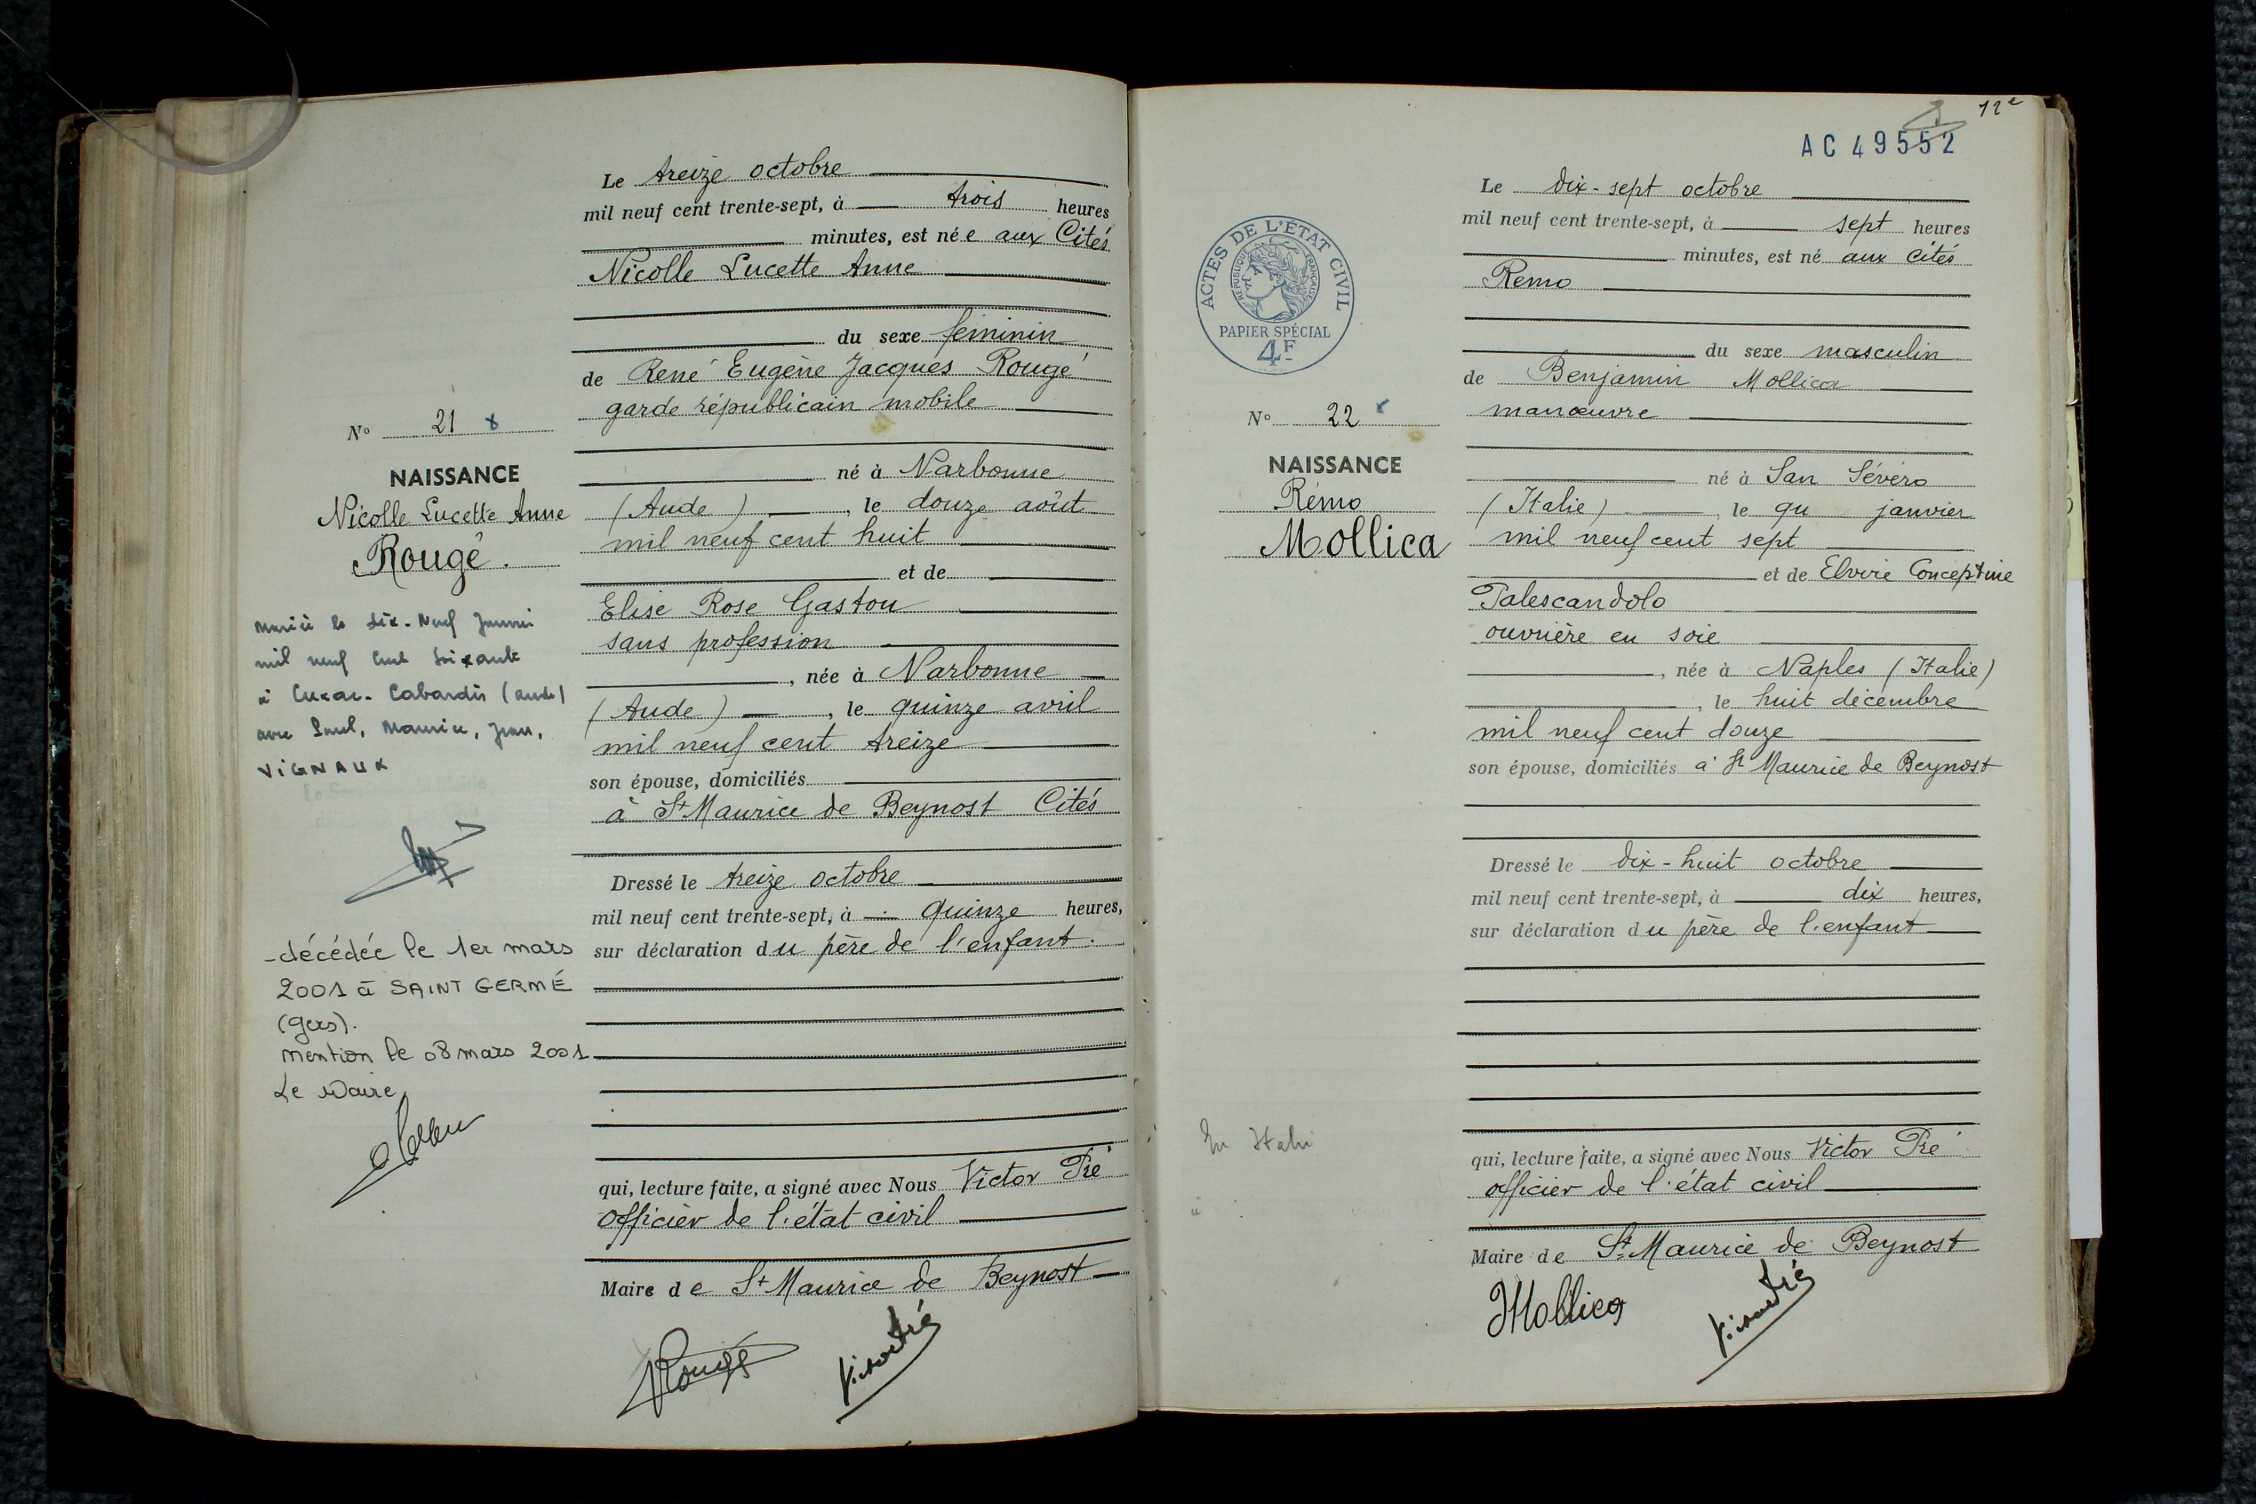 Le treize octobre
mil neuf cent trente-sept, à trois heures
minutes, est née aux Cités
Nicolle Lucette Anne
du sexe féminin
de René Eugène Jacques Rougé
garde républicain mobile
né à Narbonne
(Aude), le douze août
mil neuf cent huit
et de
Elise Rose Gaston
sans profession
, née à Narbonne
(Aude), le quinze avril
mil neuf cent treize
son épouse, domiciliés
à St Maurice de Beynost Cités
Dressé le treize octobre
mil neuf cent trente-sept, à quinze heures,
sur déclaration du père de l'enfant.
qui, lecture faite, a signé avec Nous Victor Pré
officier de l'état civil
Maire de St Maurice de Beynost
Rougé
Victor Pré
No 21
NAISSANCE
Nicolle Lucette Anne
Rougé.
Mariée le dix-neuf Janvier
mil neuf cent soixante
à Cuxac-Cabardès (Aude)
avec Paul, Maurice, Jean,
VIGNAUX
-décédée le 1er mars
2001 à SAINT GERMÉ
(gers).
mention le 08 mars 2001
Le Maire
12e
AC 49552
ACTES DE L'ÉTAT CIVIL
RÉPUBLIQUE FRANÇAISE
PAPIER SPÉCIAL
4F
No 22
NAISSANCE
Rémo
Mollica
En Italie
Le dix-sept octobre
mil neuf cent trente-sept, à sept heures
minutes, est né aux Cités
Remo
du sexe masculin
de Benjamin Mollica
manœuvre
né à San Sévéro
(Italie), le qu janvier
mil neuf cent sept
et de Elvire Conceptine
Palescandolo
ouvrière en soie
, née à Naples (Italie)
, le huit décembre
mil neuf cent douze
son épouse, domiciliés à St Maurice de Beynost
Dressé le dix-huit octobre
mil neuf cent trente-sept, à dix heures,
sur déclaration du père de l'enfant
qui, lecture faite, a signé avec Nous Victor Pré
officier de l'état civil
Maire de St Maurice de Beynost
Mollica
Victor Pré